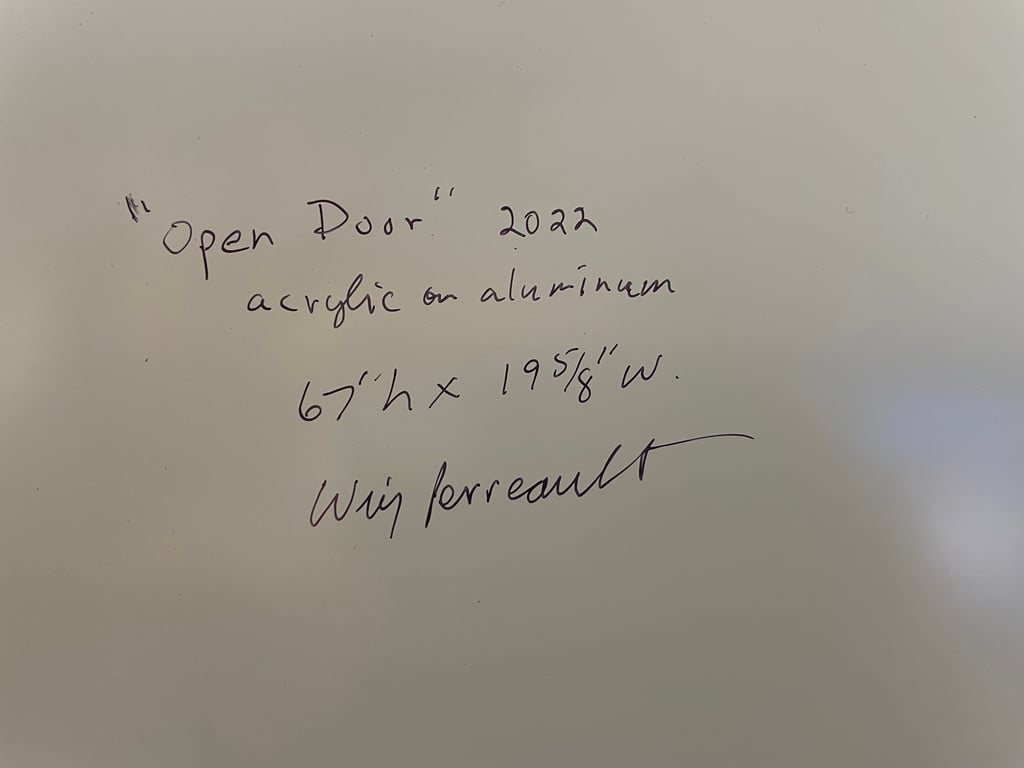 "Open Door" 2022
acrylic on aluminum
67"h x 19 5/8" w.
Perreault